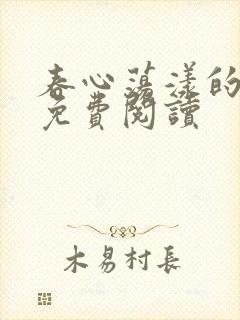 春心蕩漾的
免費閱讀
木易村長